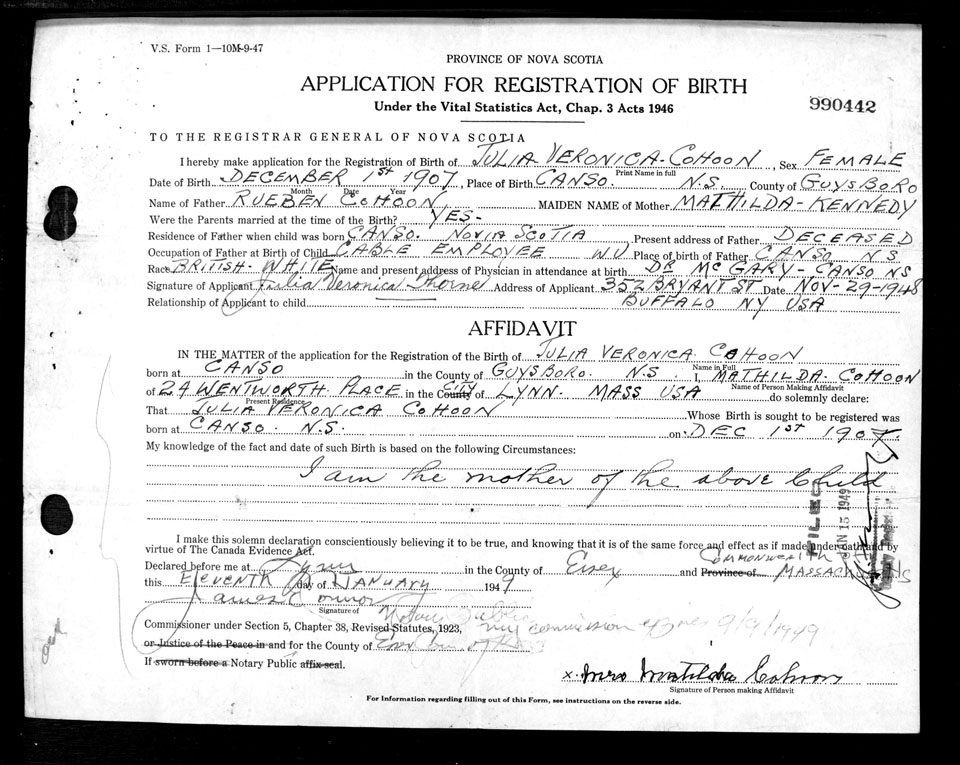 V.S. Form 1—10M-9-47
PROVINCE OF NOVA SCOTIA
APPLICATION FOR REGISTRATION OF BIRTH
990442
Under the Vital Statistics Act, Chap. 3 Acts 1946
TO THE REGISTRAR GENERAL OF NOVA SCOTIA
I hereby make application for the Registration of Birth of JULIA VERONICA COHOON, Sex FEMALE
Print Name in full
Date of Birth DECEMBER 1ST 1907, Place of Birth CANSO. N.S. County of GUYSBORO
Month Date Year
Name of Father RUEBEN COHOON MAIDEN NAME of Mother MATHILDA-KENNEDY
Were the Parents married at the time of the Birth? YES-
Residence of Father when child was born CANSO. NOVIA SCOTIA Present address of Father DECEASED
Occupation of Father at Birth of Child CABLE EMPLOYEE W.U. Place of birth of Father CANSO N S
Race BRITISH-WHITE Name and present address of Physician in attendance at birth DR McGARY-CANSO NS
Signature of Applicant Julia Veronica Thorne Address of Applicant 352 BRYANT ST Date NOV-29-1948
Relationship of Applicant to child BUFFALO NY USA
AFFIDAVIT
IN THE MATTER of the application for the Registration of the Birth of JULIA VERONICA COHOON
Name in Full
born at CANSO in the County of GUYSBORO. N.S. I, MATHILDA COHOON
Name of Person Making Affidavit
of 24 WENTWORTH PLACE in the County CITY of LYNN. MASS USA do solemnly declare:
Present Residence
That JULIA VERONICA COHOON Whose Birth is sought to be registered was
born at CANSO. N.S. on DEC 1ST 1907.
My knowledge of the fact and date of such Birth is based on the following Circumstances:
I am the mother of the above Child
FILED
JAN 15 1949
I make this solemn declaration conscientiously believing it to be true, and knowing that it is of the same force and effect as if made under oath and by
virtue of The Canada Evidence Act.
Declared before me at Lynn in the County of Essex and Province of COMMONWEALTH OF MASSACHUSETTS
this Eleventh day of JANUARY 1949
James C Connor
Signature of Notary Public
Commissioner under Section 5, Chapter 38, Revised Statutes, 1923, my commission expires 9/9/1949
or Justice of the Peace in and for the County of
If sworn before a Notary Public affix seal.
x. Mrs Matilda Cohoon
Signature of Person making Affidavit
For Information regarding filling out of this Form, see instructions on the reverse side.